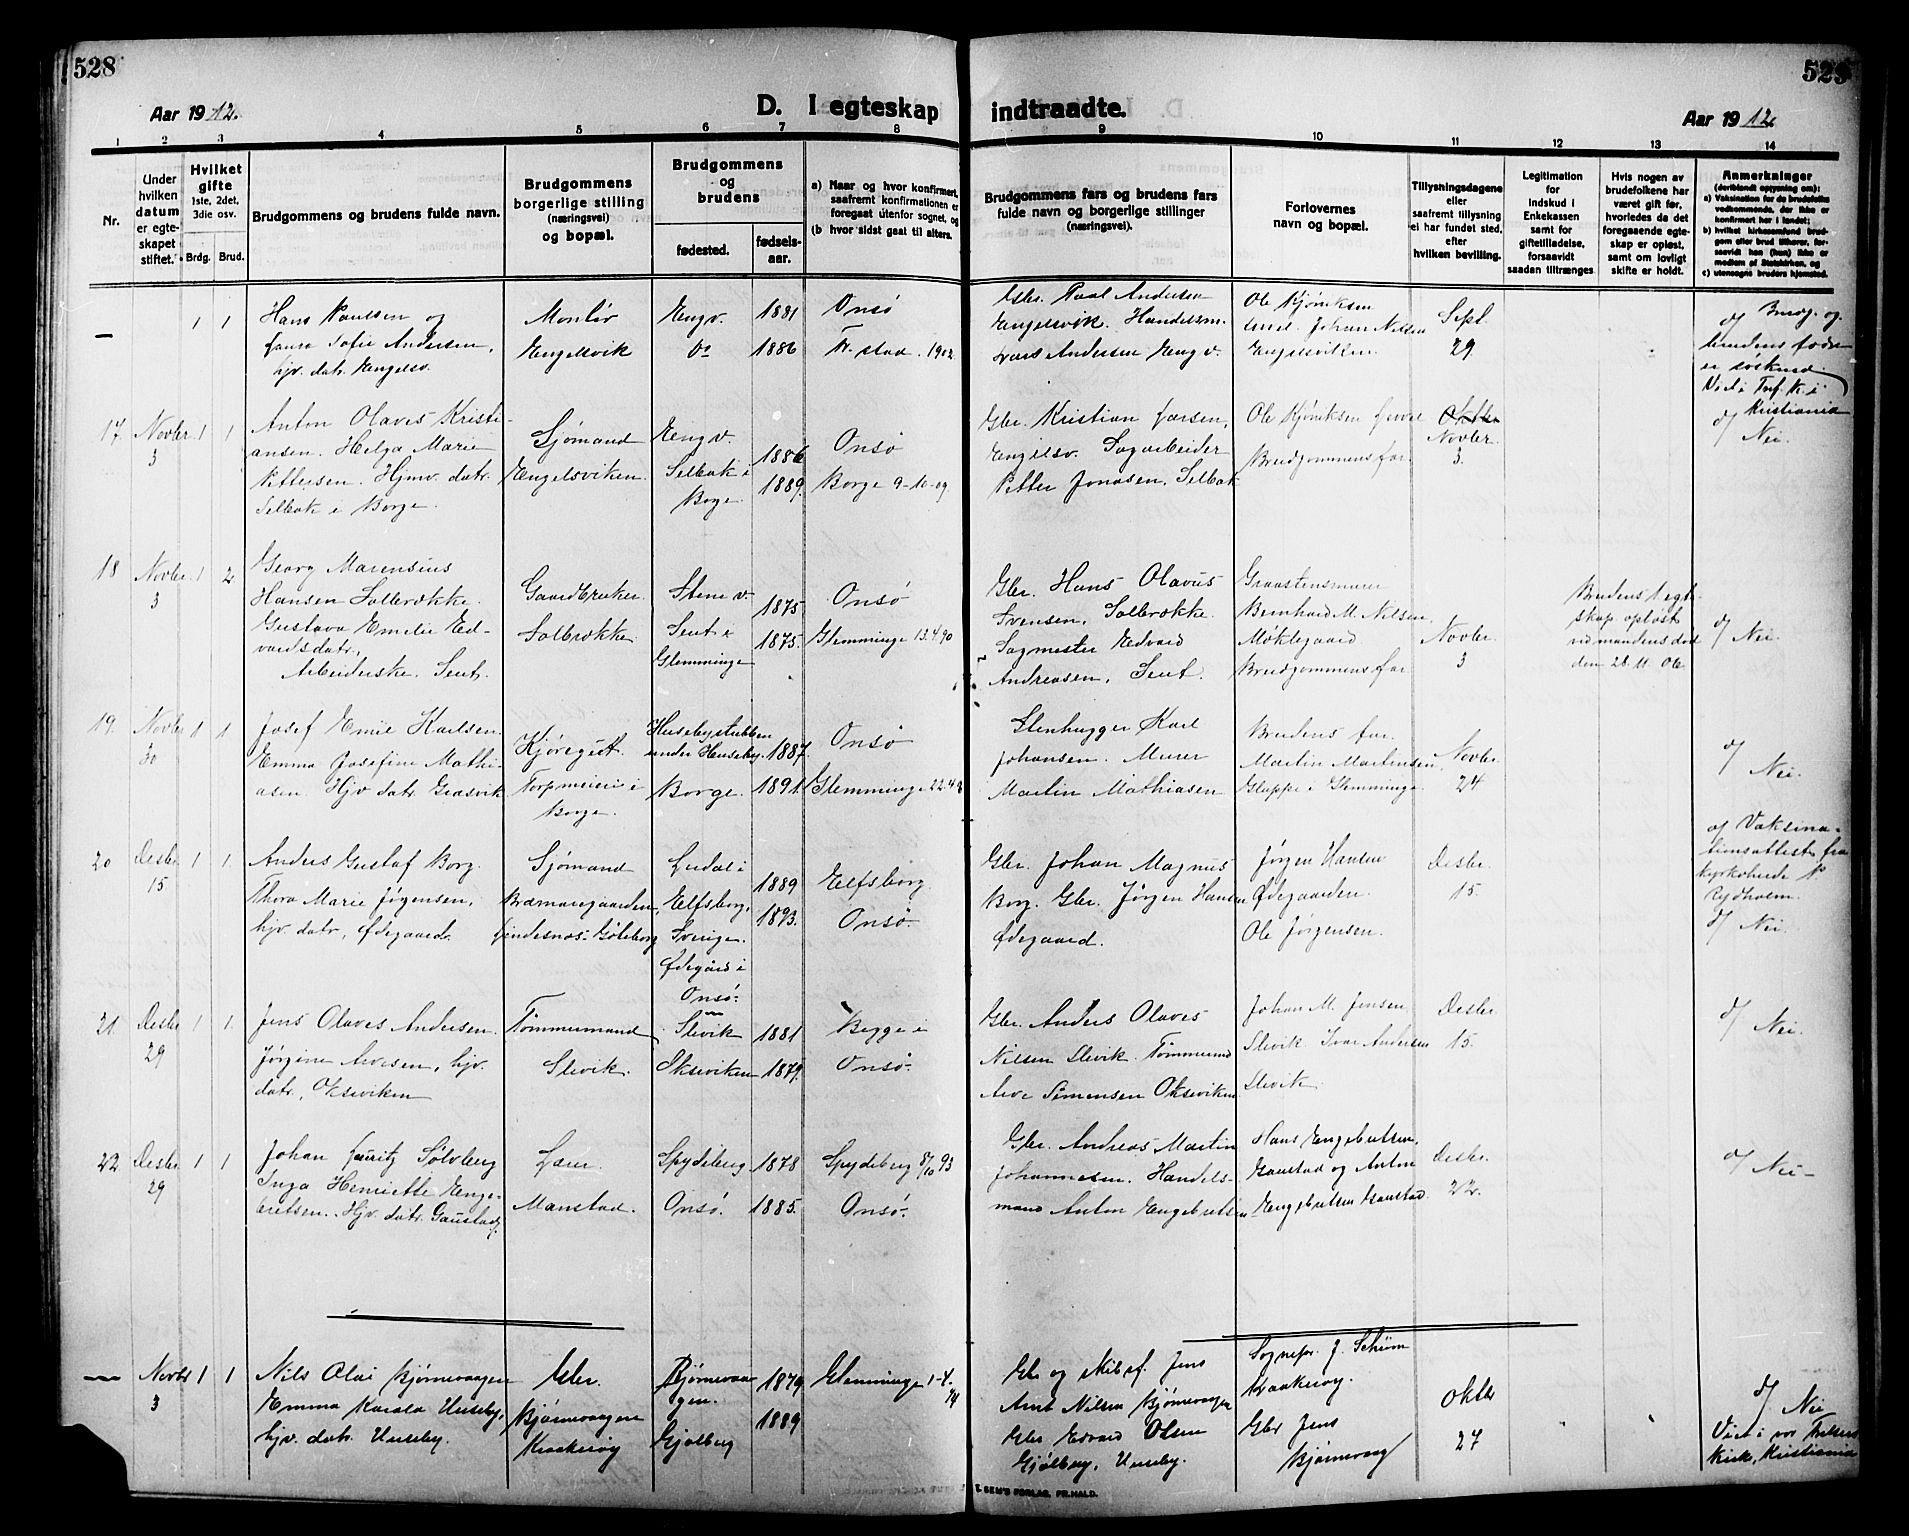 528
529
Aar 1912.
D. I egteskap indtraadte.
Aar 1912.
1 2 3 4 5 6 7 8 9 10 11 12 13 14
Nr.
Under hvilken datum er egteskapet stiftet.
Hvilket gifte 1ste, 2det, 3die osv.
Brdg. Brud.
Brudgommens og brudens fulde navn.
Brudgommens borgerlige stilling (næringsvei) og bopæl.
Brudgommens og brudens
fødested.
fødselsaar.
a) Naar og hvor konfirmert, saafremt konfirmationen er foregaat utenfor sognet, og
(b hvor sidst gaat til alters.
Brudgommens fars og brudens fars fulde navn og borgerlige stillinger (næringsvei).
Forlovernes navn og bopæl.
Tillysningsdagene eller saafremt tillysning ei har fundet sted, efter hvilken bevilling.
Legitimation for Indskud i Enkekassen samt for giftetilladelse, forsaavidt saadan tiltrænges
Hvis nogen av brudefolkene har været gift før, hvorledes da det foregaaende egteskap er opløst, samt om lovligt skifte er holdt.
Anmerkninger (deriblandt oplysning om):
a) Vaksination for de brudefolks vedkommende, der ikke er konfirmert her i landet;
b) hvilket kirkesamfund brudgom eller brud tilhører, forsaavidt han (hun) ikke er medlem af Statskirken, og
c) utensogns bruders hjemsted.
— 1 1
Hans Paulsen og
Sofie Andersen,
hjv. datr. Engelsv.
Montør
Engelsvik
Engv.
Do
1881
1886
Onsø
Fr.stad. 1902
Gbr. Paal Andersen
Engelsvik. Handelsm.
Lars Andersen Engv.
Ole Kjøniksen
Johan Nilsen
Engelsviken
Sept.
29
d/ Brudg. og
brudens fædre
er søskend.
Viet i Trf. K. i
Kristiania
17. Novbr 3 1 1
Anton Olaves Kristi-
ansen. Helga Marie
Pettersen. Hjmv. datr.
Selbak i Borge.
Sjømand
Engelsviken.
Engv.
Selbak i
Borge
1886
1889.
Onsø
Borge 9-10-09
Gbr. Kristian Larsen,
Engelsv. Sagarbeider
Petter Jonasen, Selbak
Ole Kjøniksen
Brudgommens far.
Oktbr
Novbr.
3.
d/ Nei.
18 Novbr. 3 1 2
Georg Marensius
Hansen Solbrække.
Gustava Emelie Ed-
vardsdatr.,
Arbeiderske. Seut.
Gaardbruker.
Solbrække
Stene v.
Seut i
Glemminge
1875
1875.
Onsø
Glemminge 13.4.90
Gbr. Hans Olavus
Svensen, Solbrække.
Sagmester Edvard
Andreasen, Seut.
Graastensmurer
Bernhard M. Nilsen,
Møklegaard
Brudgommens far
Novbr.
3
Brudens 1 egte-
skap opløst
ved mandens død
den 28.11.06
d/ Nei.
19. Novbr 30 1 1
Josef Emil Karlsen.
Emma Josefine Mathi-
asen. Hjv. datr. Græsvik
Kjøregut.
Torpmeieri i
Borge.
Husebystubben
under Huseby.
Borge.
1887.
1891.
Onsø
Glemminge 22.4.
Stenhugger Karl
Johansen. Murer
Martin Mathiasen
Brudens far.
Martin Martinsen,
Gluppe i Glemminge
Novbr.
24
d/ Nei.
20 Desbr 15 1 1.
Anders Gustaf Borg.
Thora Marie Jørgensen,
hjv. datr, Ødegaard.
Sjømand
Göteborg
Elfsborg,
Sverige.
Ødegård i
Onsø.
1889
1893.
Elfsborg.
Onsø.
Gbr. Johan Magnus
Borg. Gbr. Jørgen Hansen
Ødegaard.
Jørgen Hansen
Ødegaarden.
Ole Jørgensen.
Desbr.
15.
a/ Vaksina-
tionsattest fra
kyrkoherde P
Rydholm.
d/ Nei.
21. Desbr 29 1 1.
Jens Olaves Andersen.
Jørgine Arvesen, hjv.
datr., Økseviken
Tømmermand
Slevik.
Slevik
Økseviken
1881
1879.
Begge i
Onsø.
Gbr. Anders Olaves
Nilsen Slevik. Tømmermd
Arve Simensen Økseviken
Johan M. Jensen
Slevik. Ivar Andersen
Slevik.
Desbr.
15.
d/ Nei.
22 Desbr 29 1 1
Johan Lauritz Sølvberg
Inga Henriette Enge-
bretsen. Hjv. datr. Gaustad.
Lærer.
Manstad.
Spydeberg
Onsø.
1878
1885.
Spydeberg 8/10 93
Onsø.
Gbr. Andreas Martin
Johannesen. Handels-
mand Anton Engebretsen
Hans Engebretsen,
Gaustad og Anton
Engebretsen Gaustad.
Desbr.
22.
d/ Nei
— Novbr 3 1 1
Nils Olai Bjørnevaagen
Emma Karola Huseby,
hjv. datr. Huseby.
Gbr.
Bjørnevaagen
Kraakerøy
Bjørnevaa-
gen.
Gjølberg
1879
1889
Glemminge 1-4-94
Gbr og Skibsf. Jens
Arnt Nilsen Bjørnevaagen
Gbr Edvard Olsen
Gjølberg, Huseby.
Sognepr. J. Schiøm
Kraakerøy.
Gbr Jens
Bjørnevaag
Oktbr
27
d/ Nei
Viet i vor Frelsers
kirke, Kristiania
E. SEM'S FORLAG, FR.HALD.